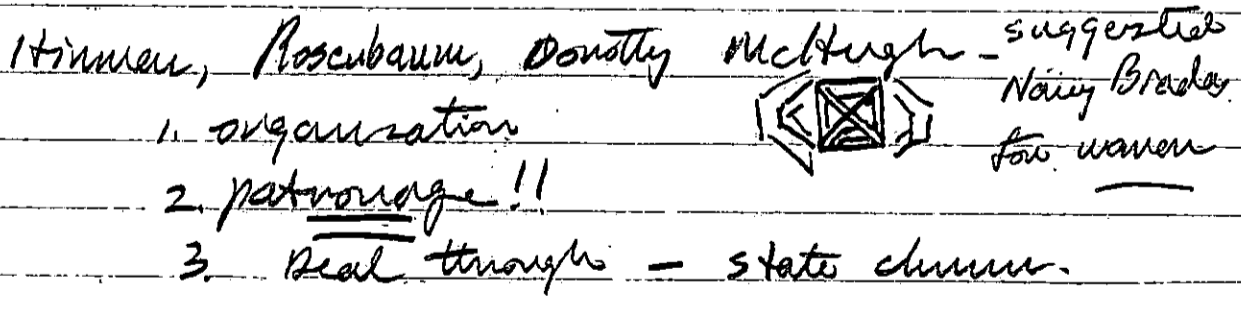 Hinman, Rosenbaum, Dorothy McHugh - suggested
Nancy Brady
for women
1. organization
2. patronage!!
3. Deal through - state chmn.